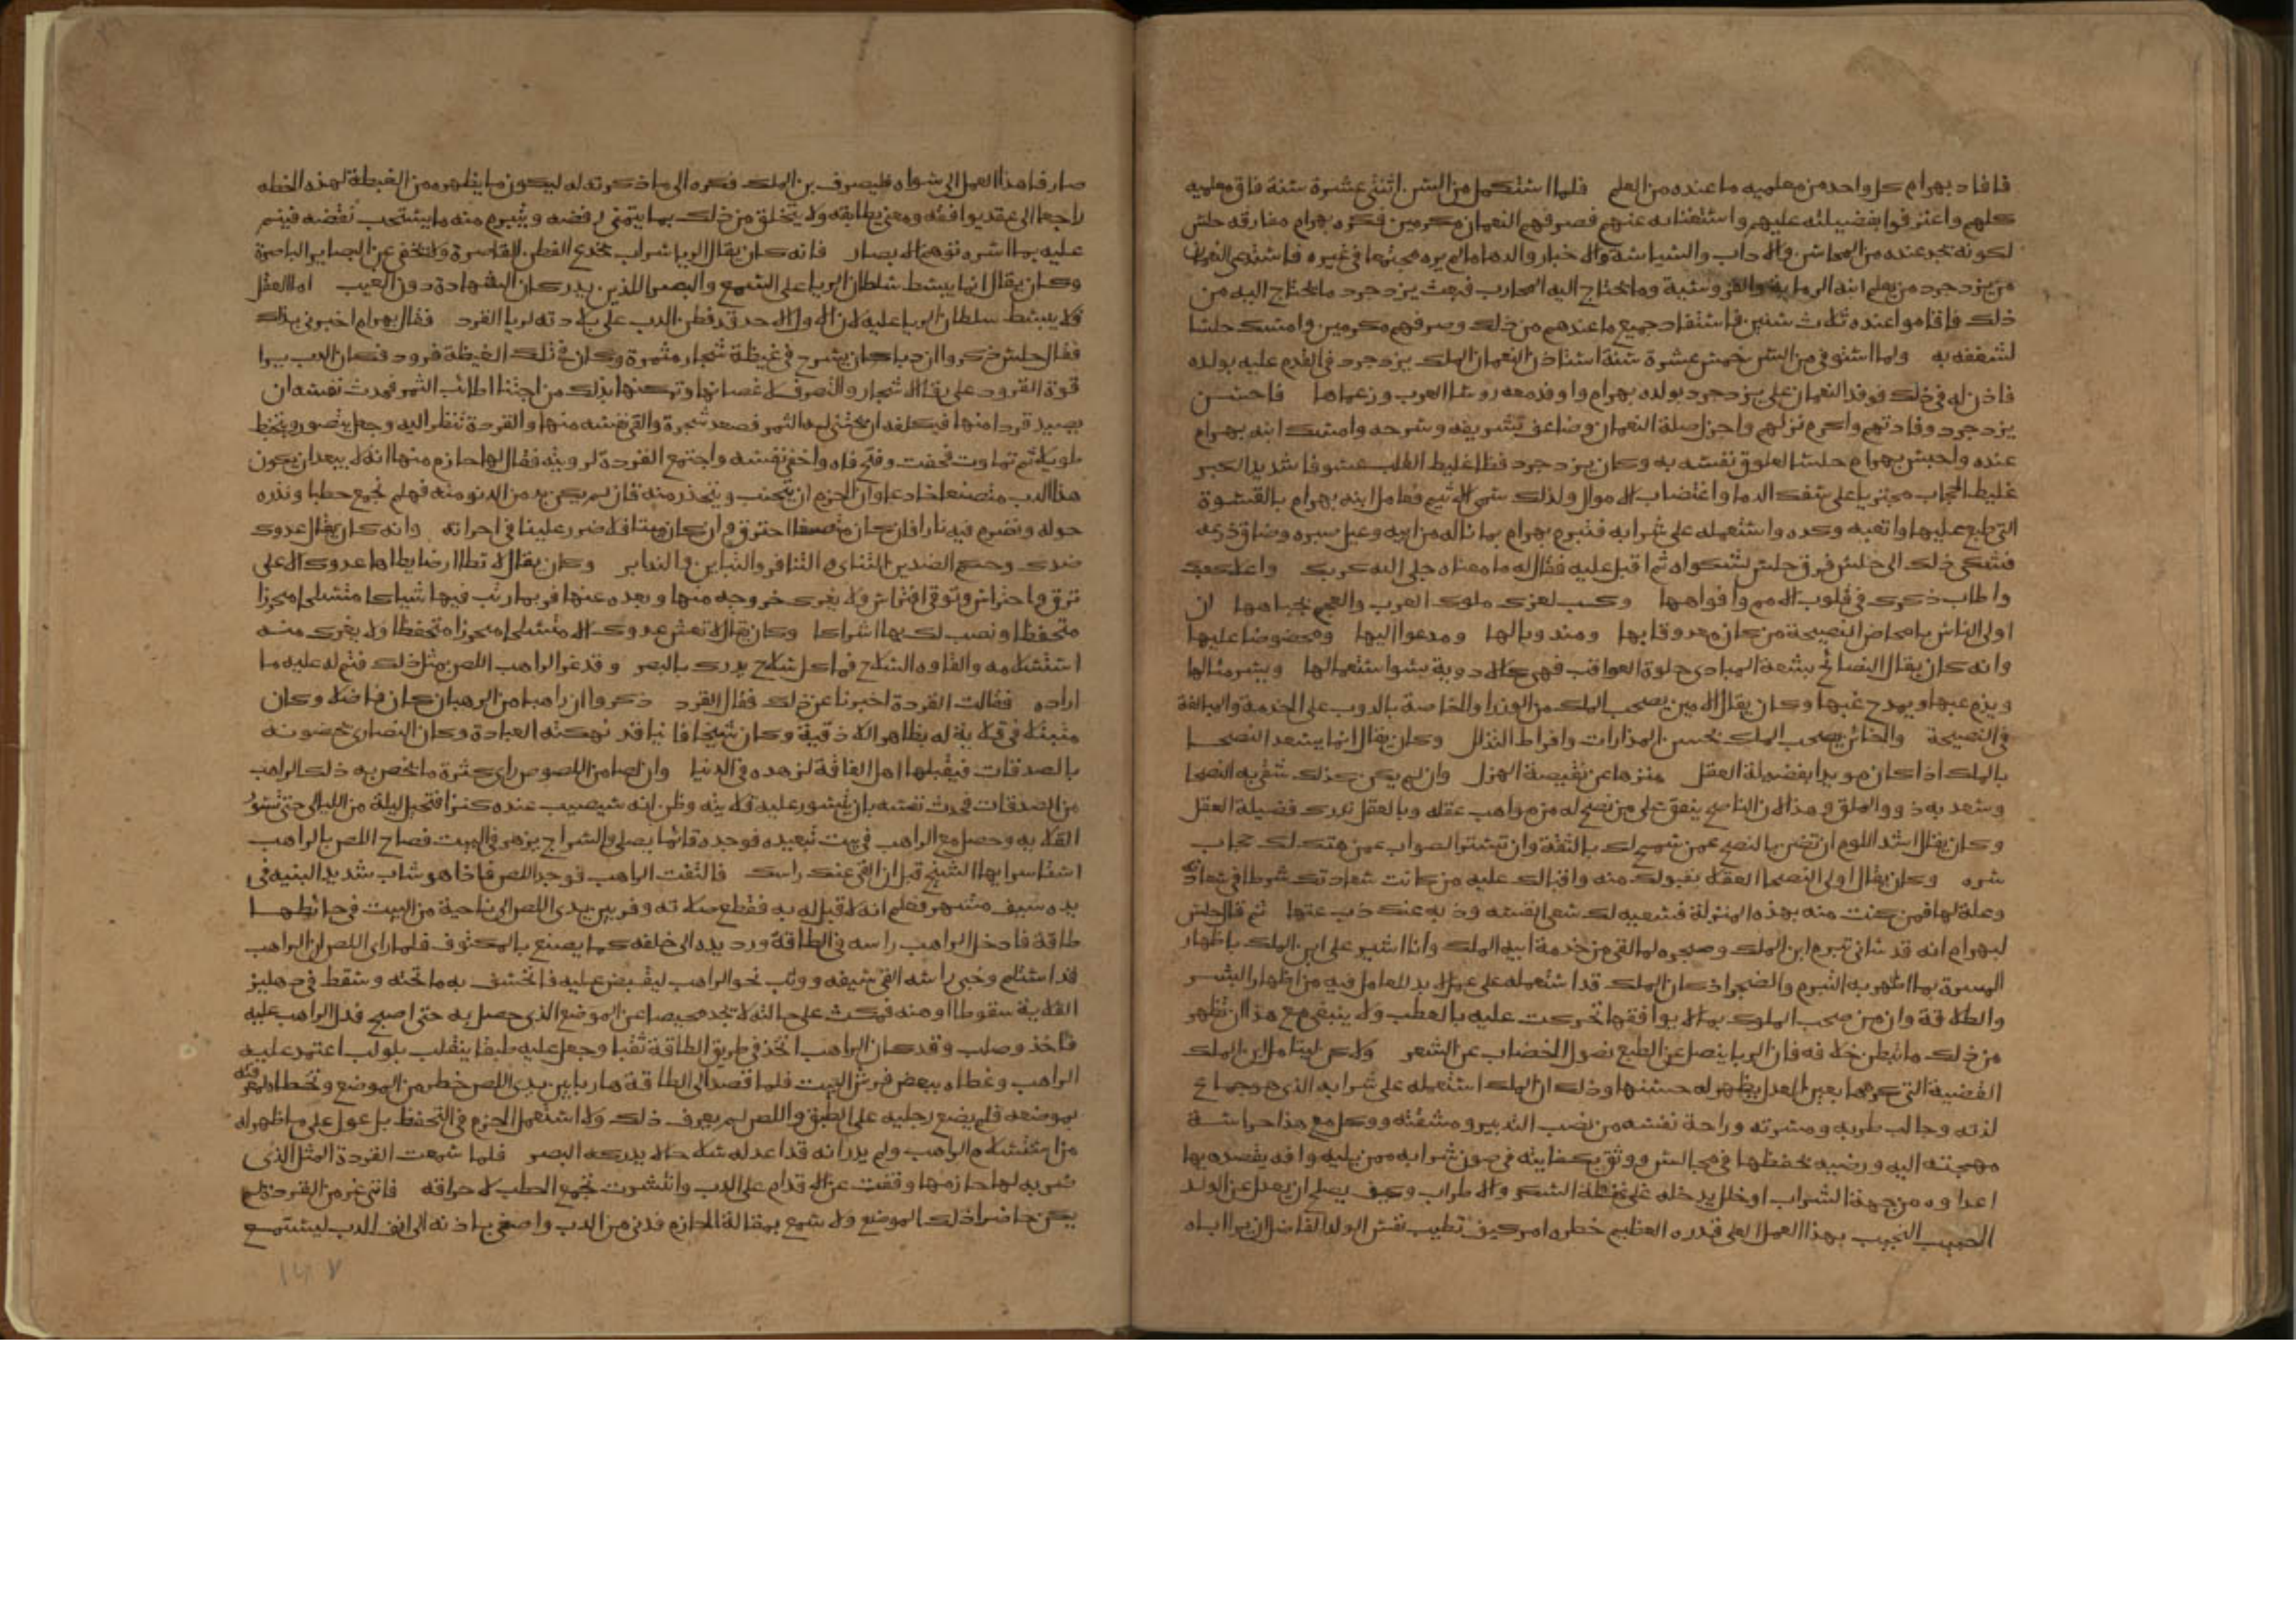 فافاد بهرام كل واحد من معلميه ما عنده من العلم فلما استكمل من السن اثنتى عشرة سنة فاق معلميه
كلهم واعترفوا بفضيلته عليهم واستغنايه عنهم فصرفهم النعمان مكرمين فكره بهرام مفارقه حلس
لكونه تجر عنده من المحاسن والاداب والسياسة والاخبار والدها ما لم يره مجتمعا فى غيره فاستدعى النعمان
من يزدجرد من يعلم ابنه الرماية والفروسية وما يحتاج اليه المحارب فبعث يزدجرد ما يحتاج اليه من
ذلك فاقاموا عنده ثلاث سنين فاستفاد جميع ما عندهم من ذلك وصرفهم مكرمين وامسك حلسا
لشغفه به ولما استوفى من السن خمس عشرة سنة استاذن النعمان الملك يزدجرد فى القدم عليه بولده
فاذن له فى ذلك فوفد النعمان على يزدجرد بولده بهرام واوفد معه روسا العرب وزعماها فاحسن
يزدجرد وفادتهم واكرم نزلهم واجزل صلة النعمان وضاعف تشريفه وسرحه وامسك ابنه بهرام
عنده واحبس بهرام حلسا لعلوق نفسه به وكان يزدجرد فظا غليظ القلب عسوفا شديد الكبر
غليظ الحجاب مجتريا على سفك الدما واغتصاب الاموال ولذلك سمى الاثيم فعامل ابنه بهرام بالقسوة
التى طبع عليها واتعبه وكده واستعمله على شرابه فتبرم بهرام بما ناله من ابيه وعيل صبره وضاق ذرعه
فشكى ذلك الى حلس فرق حلس لشكواه ثم اقبل عليه فقال له ما معناه جلى الله كربك واعلا كعبك
واطاب ذكرك فى قلوب الامم وافواهها وكسب لعزك ملوك العرب والعجم بجباهها ان
اولى الناس بامحاض النصيحة من كان معروفا بها ومندوبا لها ومدعوا اليها ومحضوضا عليها
وانه كان يقال النصائح بشعة المبادى حلوة العواقب فهى كالادوية يسوا استعمالها ويسر مئالها
ويذم عبها ويمدح غبها وكان يقال الامين يصحب الملك من الوزرا والخاصة بالدوب على الخدمة والمبالغة
فى النصيحة والخائن يصحب الملك بحسن المدارات وافراط التذلل وكان يقال انما يسعد النصحا
بالملك اذا كان مويدا بفضيلة العقل منزها عن نقيصة الهزل وان لم يكن كذلك شقى به النصحا
وسعد به ذوو الملق وهذا لان الناصح ينفق على من نصح له من مواهب عقله وبالعقل تدرك فضيلة العقل
وكان يقال اشد اللوم ان تضن بالنصح عمن سمح لك بالثقة وان تستتر الصواب عمن هتك لك حجاب
سره وكان يقال اولى النصحا العقلا بقبولك منه واقبالك عليه من كانت سعادتك شرطا فى سعادته
وعلة لها فمن كنت منه بهذه المنزلة فسعيه لك سعى لنفسه وذبه عنك ذب عنها ثم قال حلس
لبهرام انه قد سانى تبرم ابن الملك وضجره لما لقى من خدمة ابيه الملك وانا اشير على ابن الملك باظهار
المسرة بما اظهر به التبرم والضجر اذ كان الملك قد استعمله على عمل لا بد للعامل فيه من اظهار البشر
والطلاقة وان من صحب الملوك بما لا يوافقها تحركت عليه بالعطب ولا ينبغى مع هذا ان تظهر
من ذلك ما تبطن خلافه فان الريا ينصل عن الطبع نصول الخضاب عن الشعر ولاكن ليتامل ابن الملك
القضية التى كرهها بعين العدل يظهر له حسنها وذلك ان الملك استعمله على شرابه الذى هو جماع
لذته وجالب طربه ومسرته وراحة نفسه من نصب التدبير ومشقته ووكل مع هذا حراسة
مهجته اليه ورضيه لحفظها فى مجالس ووثق بكفايته فى صون شرابه ممن يليه وافه يقصده بها
اعداوه من جهة الشراب او خلل يدخله على غفلة السكر والاطراب وكيف يصلح ان يعدل عن الولد
الحبيب النجيب بهذا العمل العلى قدره العظيم خطره ام كيف تطيب نفس الولد الفاضل ان يرا اباه
صارفا هذا العمل الى سواه فليصرف بن الملك فكره الى ما ذكرته له ليكون ما يظهره من الغبطة لهذه الخطه
راجعا الى عقد يوافقه ومعنى يطابقه ولا يتخلق من ذلك بما يتمنى رفضه ويتبرم منه ما يستحب نقضه فينم
عليه بما اسره توهم الابصار فانه كان يقال الريا سراب يخدع الفطن القاصرة ولا تخفى عن البصاير الباصرة
وكان يقال انما يبسط سلطان الريا على السمع والبصر اللذين يدركان الشهادة دون الغيب اما العقل
فلا يبسط سلطان الريا عليه لان اله والاحد قد فطن الدب على بلادته لريا القرد فقال بهرام اخبرنى بذلك
فقال حلس ذكروا ان دبا كان يسرح فى غيظة شجار مثمرة وكان فى تلك الغيظة قرود فكان الدب يرا
قوة القرود على رقا الاشجار والتصرف لاغصانها وتمكنها بذلك من اجتنا اطائب الثمر فحدث نفسه ان
يصيد قردا منها فيكلفه ان يجتنى له الثمر فصعد شجرة والقى نفسه منها والقردة تنظر اليه وجعل يتصور ويتخبط
طويلا ثم تماوت فخفت وفتح فاه واخفى نفسه واجتمع القردة لرويته فقال لها حازم منها انه لا يبعد ان يكون
هذا الدب متصنعا خادعا وان الحزم ان يتجنب ويتحذر منه فان لم يكن بد من الدنو منه فهلم نجمع حطبا ونذره
حوله ونضرم فيه نارا فان كان متصنعا احترق وان كان ميتا فلا ضرر علينا فى احراقه وانه كان يقال عدوك
ضدك وحكم الضدين التنائى والتنافر والتباين والتدابر وكان يقال لا تطا ارضا يطاها عدوك الا على
ترق واحتراس وتوقى افتراس ولا يغرك خروجه منها وبعده عنها فربما رتب فيها شباكا متسلحا محرزا
متحفظا ونصب لك بها اشراكا وكان يقال لا تغش عدوك الا متسلحا محرزا متحفظا ولا يغرك منه
استسلامه والقاوه السلاح فما كل سلاح يدرك بالبصر وقد غر الراهب اللص بمثل ذلك فتم له عليه ما
اراده فقالت القردة اخبرنا عن ذلك فقال القرد ذكروا ان راهبا من الرهبان كان فاضلا وكان
متبتلا فى قلاية له بظاهر اللاذقية وكان شيخا فانيا قد نهكته العبادة وكان النصارى يخصونه
بالصدقات فيقبلها اهل الفاقة لزهده فى الدنيا وان لصا من اللصوص راى كثرة ما يخص به ذلك الراهب
من الصدقات فحدث نفسه بان يتسور عليه قلايته وظن انه سيصيب عنده كنزا فتحيل ليلة من الليالى حتى تسور
القلايه وحصل مع الراهب فى بيت تعبيده فوجده قائما يصلى والسراج يزهر فى البيت فصاح اللص بالراهب
استاسر ايها الشيخ قبل ان القى عنك راسك فالتفت الراهب فوجد اللص فاذا هو شاب شديد البنيه فى
يده سيف مشهر فعلم انه لا قبل له به فقطع صلاته وفر بين يدى اللص الى ناحية من البيت فى حائطها
طاقة فادخل الراهب راسه فى الطاقة ورد يده الى خلفه كما يصنع بالمكتوف فلما راى اللص ان الراهب
قد استسلم وخبى راسه القى سيفه ووثب نحو الراهب ليقبض عليه فانخسف به ما تحته وسقط فى دهليز
القلاية سقوطا اوهنه فمكث على حالته لا تجد محيصا عن الموضع الذى حصل به حتى اصبح فدل الراهب عليه
فاخذ وصلب وقد كان الراهب اتخذ فى طريق الطاقة ثقبا وجعل عليه طبقا ينقلب بلولب اعتمد عليه
الراهب وغطاه ببعض فرش البيت فلما قصد الى الطاقة هاربا بين يدى اللص خطر من الموضع وتخطاه لمعرفته
بموضعه فلم يضع رجليه على الطبق واللص لم يعرف ذلك ولا استعمل الحزم فى التحفظ بل عول على ما ظهر له
من استسلام الراهب ولم يدر انه قد اعد له سلاحا لا يدركه البصر فلما سمعت القردة المثل الذى
ضربه لها حازمها وقفت عن الاقدام على الدب وانتشرت تجمع الحطب لاحراقه فاتى غر من القردة لم
يكن حاضرا ذلك الموضع ولا سمع بمقالة الحازم فدنى من الدب واصغى باذنه الى انف الدب ليستمع